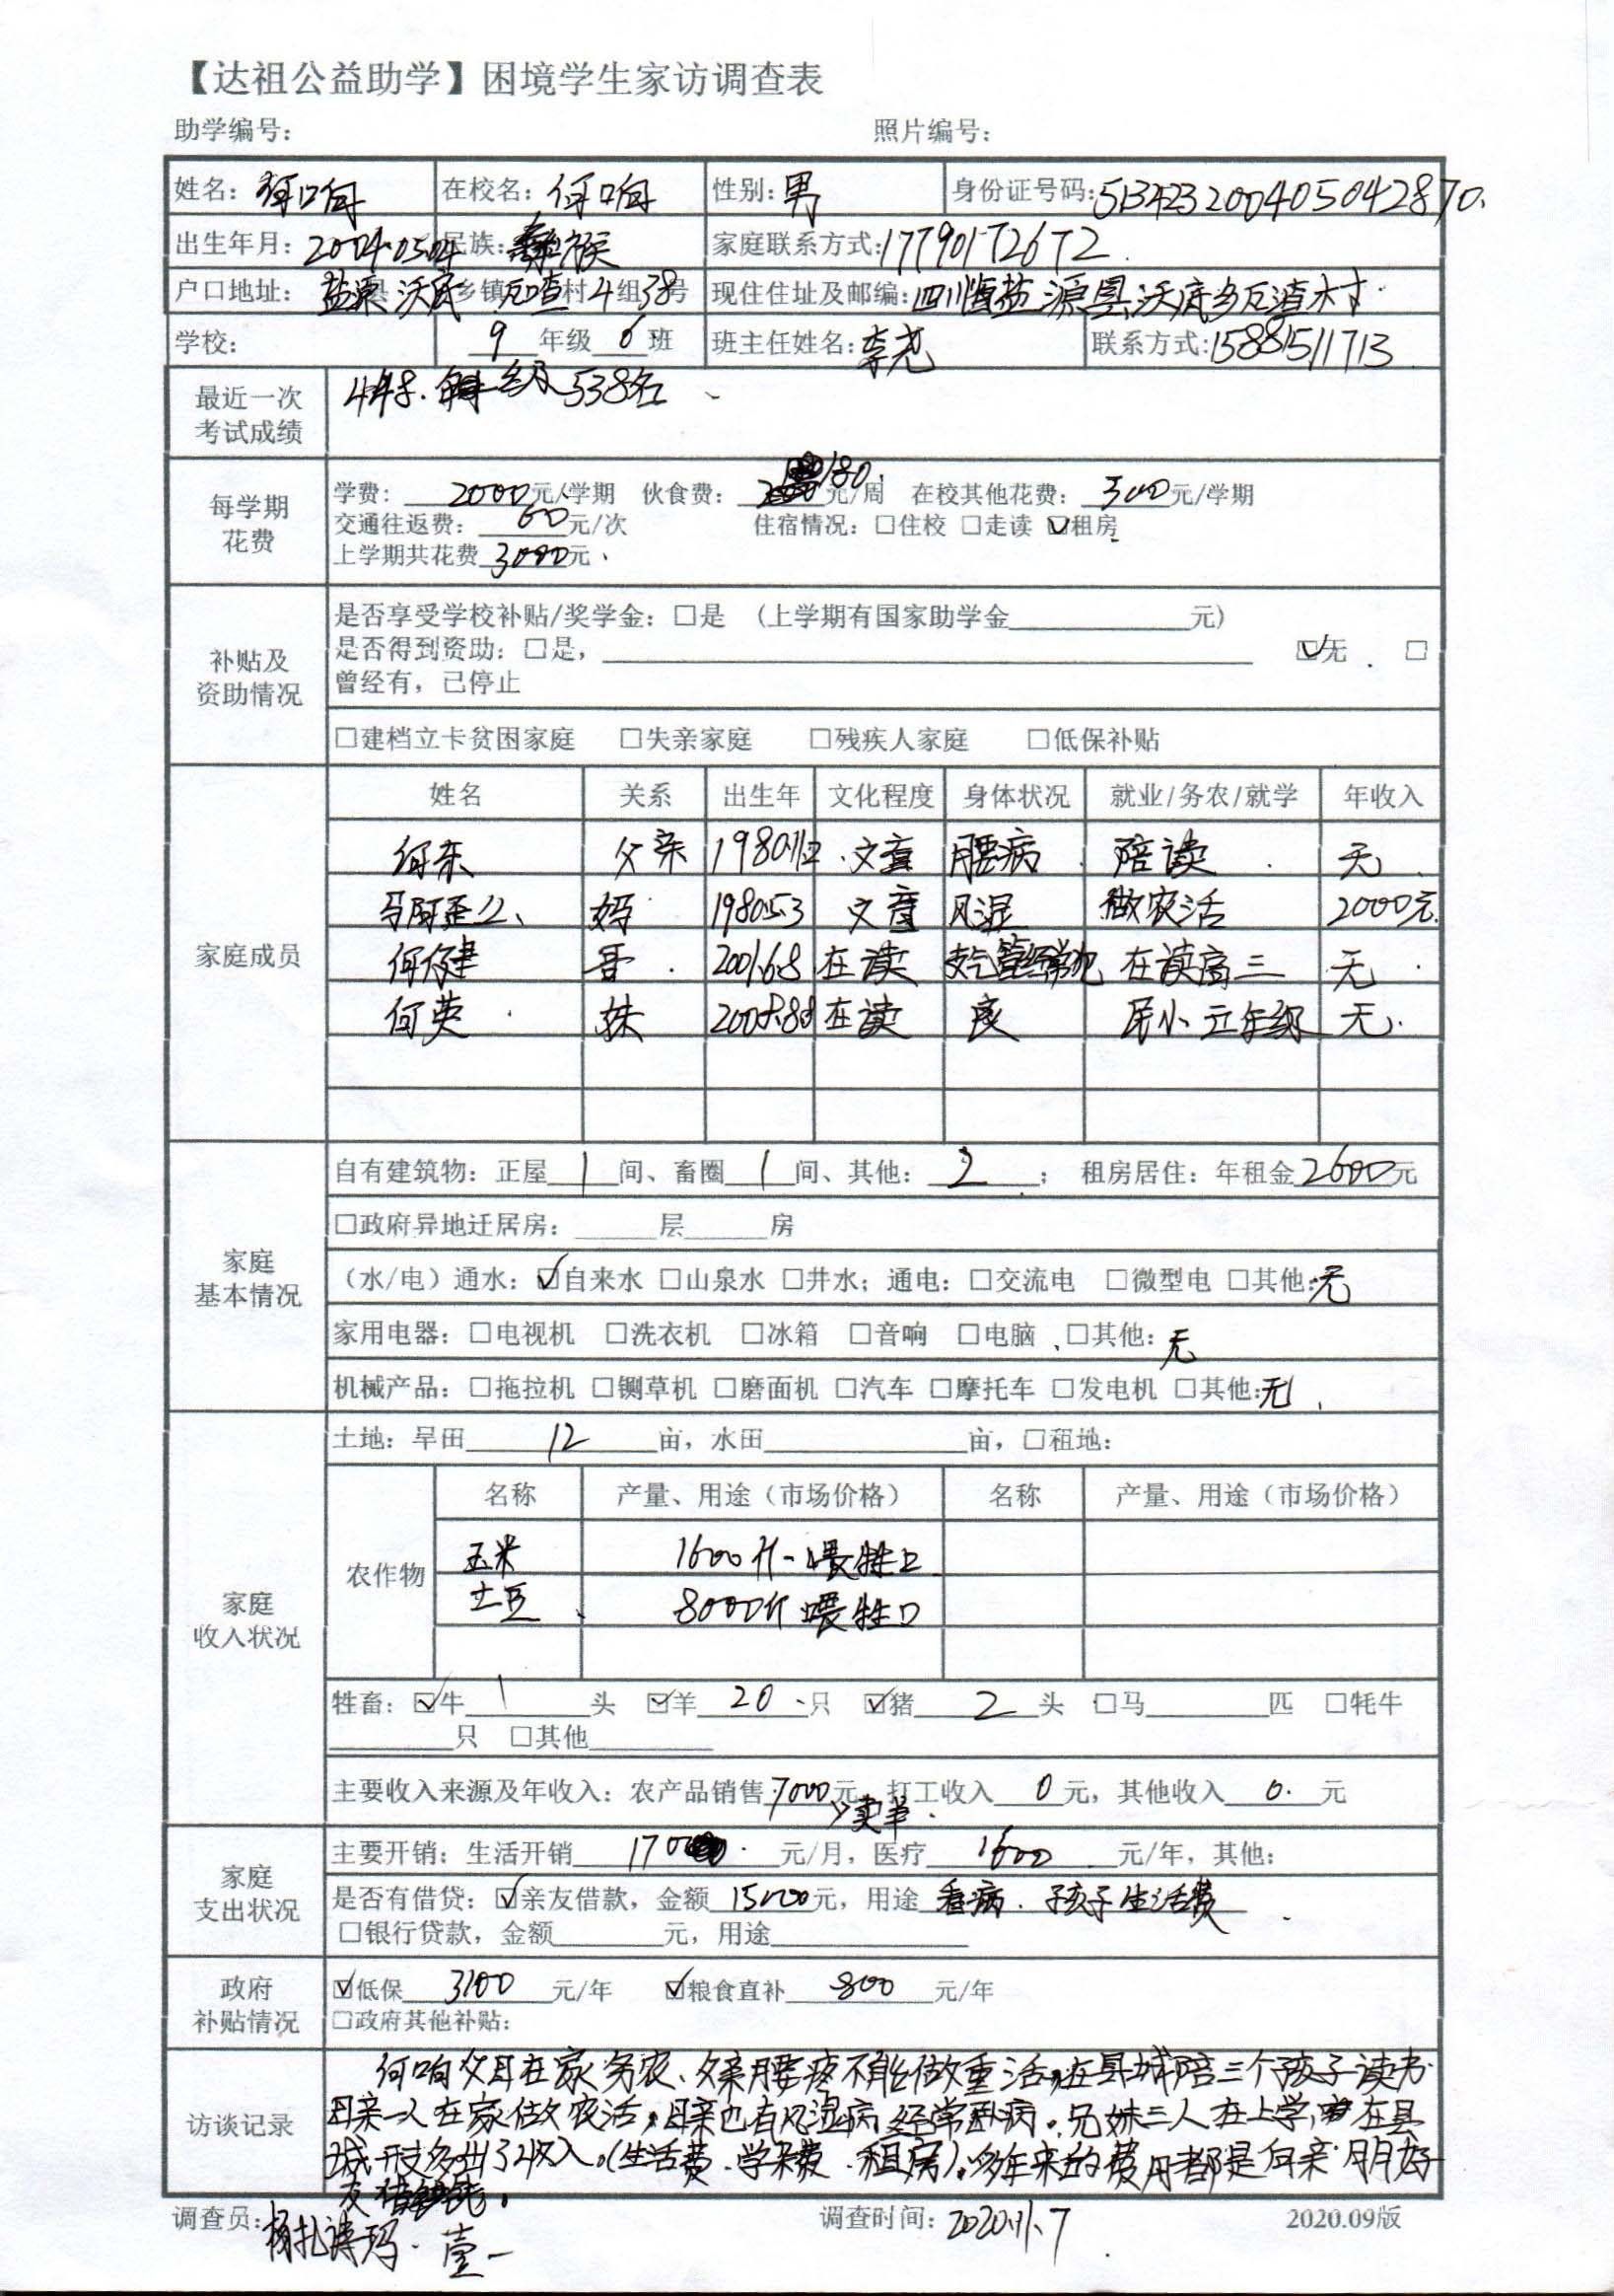 【达祖公益助学】困境学生家访调查表
助学编号： 照片编号：
姓名：何响 在校名：何响 性别：男 身份证号码：513423200405042870
出生年月：2004.0504 民族：彝族 家庭联系方式：17790172672
户口地址：盐源县沃底乡镇瓦喳村4组38号 现住住址及邮编：四川省盐源县沃底乡瓦渣村
学校： 9年级6班 班主任姓名：李尧 联系方式：15881511713
最近一次考试成绩 448. 年级538名
每学期花费 学费：2000元/学期 伙食费：180元/周 在校其他花费：300元/学期
交通往返费：60元/次 住宿情况：□住校 □走读 ☑租房
上学期共花费3000元
补贴及资助情况 是否享受学校补贴/奖学金：□是 （上学期有国家助学金 元）
是否得到资助：□是， ☑无 □
曾经有，已停止
□建档立卡贫困家庭 □失亲家庭 □残疾人家庭 □低保补贴
家庭成员 姓名 关系 出生年 文化程度 身体状况 就业/务农/就学 年收入
何东 父亲 文盲 腰病 陪读 无
马阿歪 妈 1980.5.3 文盲 风湿 做农活 2000元
何健 哥 2001.6.8 在读 支气管经常犯 在读高三 无
何英 妹 2008.8.8 在读 良 民小 五年级 无
家庭基本情况 自有建筑物：正屋1间、畜圈1间、其他：2； 租房居住：年租金2600元
□政府异地迁居房： 层 房
（水/电）通水：☑自来水 □山泉水 □井水；通电：□交流电 □微型电 □其他：无
家用电器：□电视机 □洗衣机 □冰箱 □音响 □电脑 □其他：无
机械产品：□拖拉机 □铡草机 □磨面机 □汽车 □摩托车 □发电机 □其他：无
家庭收入状况 土地：旱田12亩，水田 亩，□租地：
农作物 名称 产量、用途（市场价格） 名称 产量、用途（市场价格）
玉米 1600斤-喂牲口
土豆 8000斤 喂牲口
牲畜：☑牛1头 ☑羊20只 ☑猪2头 □马 匹 □牦牛
只 □其他
主要收入来源及年收入：农产品销售7000元，打工收入0元，其他收入0元
卖羊
家庭支出状况 主要开销：生活开销1700元/月，医疗1600元/年，其他：
是否有借贷：☑亲友借款，金额15000元，用途看病.孩子生活费
□银行贷款，金额 元，用途
政府补贴情况 ☑低保3100元/年 ☑粮食直补800元/年
□政府其他补贴：
访谈记录 何响父母在家务农、父亲腰疼不能做重活，在县城陪三个孩子读书
母亲一人在家做农活，母亲也有风湿病，经常卧病。兄妹三人在上学，在县
城开支多出了收入。(生活费.学杂费.租房)。多年来的费用都是向亲朋好
友借钱。
调查员：杨扎诗玛. 壹一 调查时间：2020.11.7 2020.09版